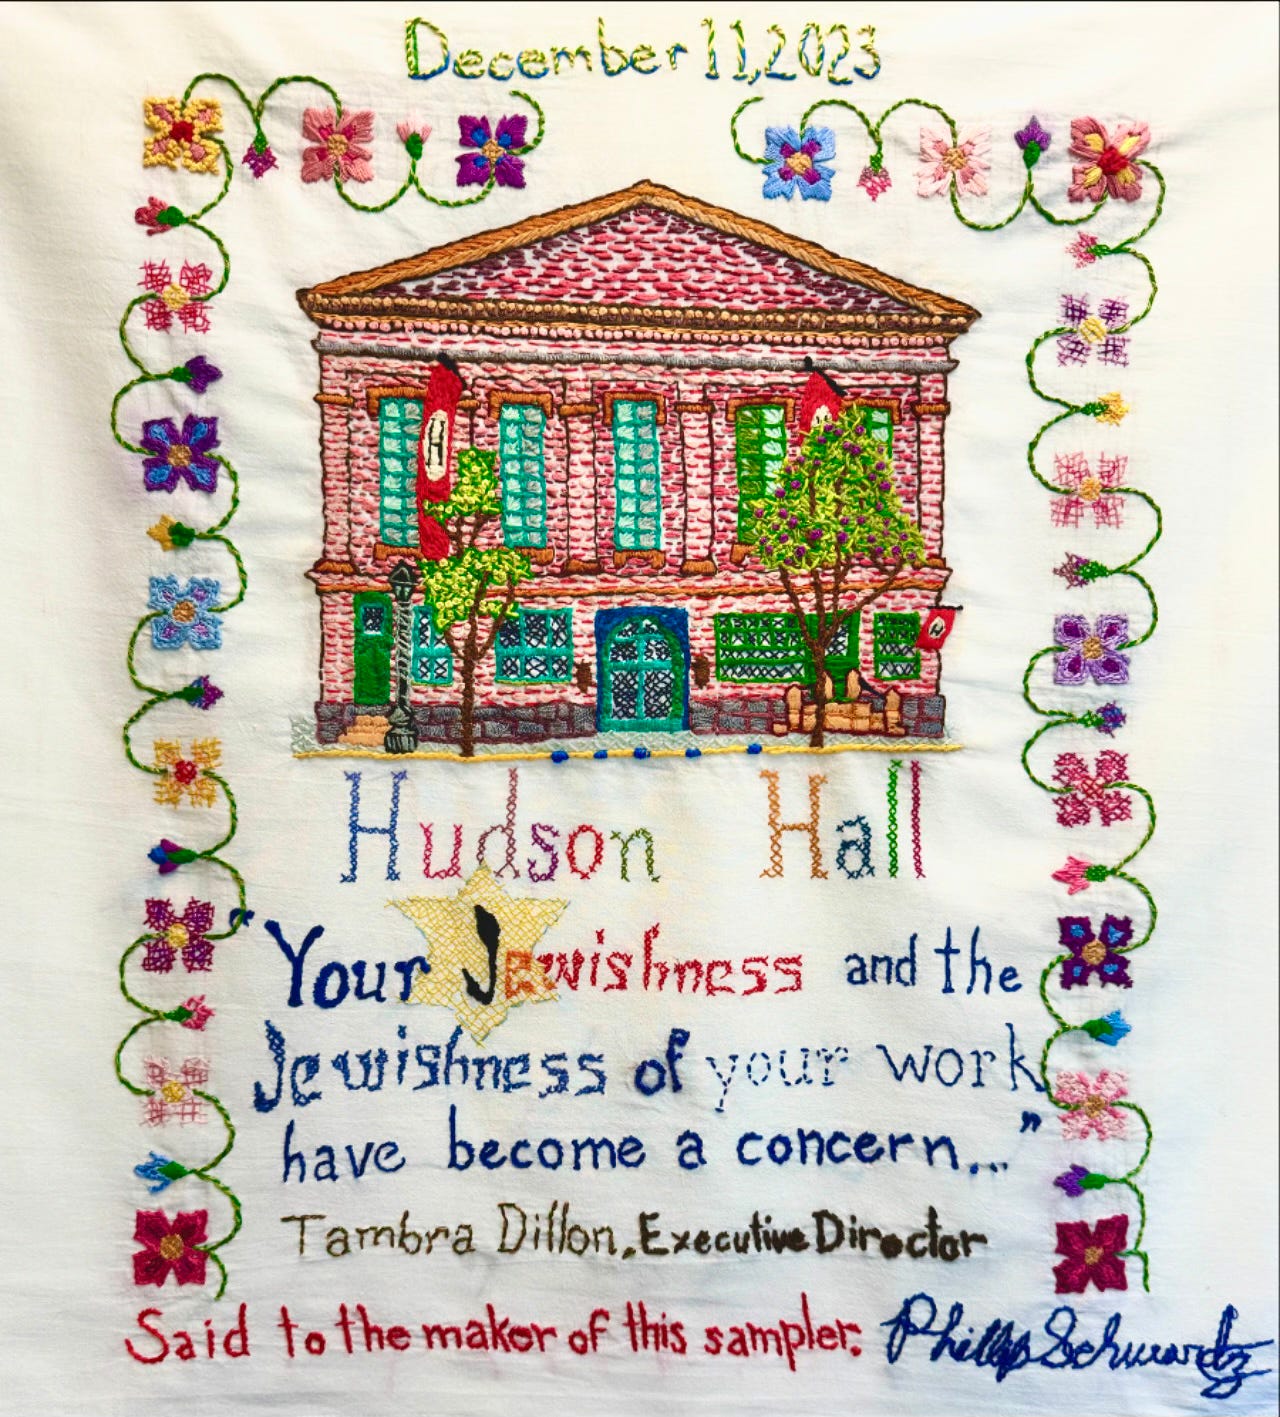 December 11, 2023
H
H
H
Hudson Hall
"Your Jewishness and the
Jewishness of your work
have become a concern..."
Tambra Dillon, Executive Director
Said to the maker of this sampler: Phillip Schwartz